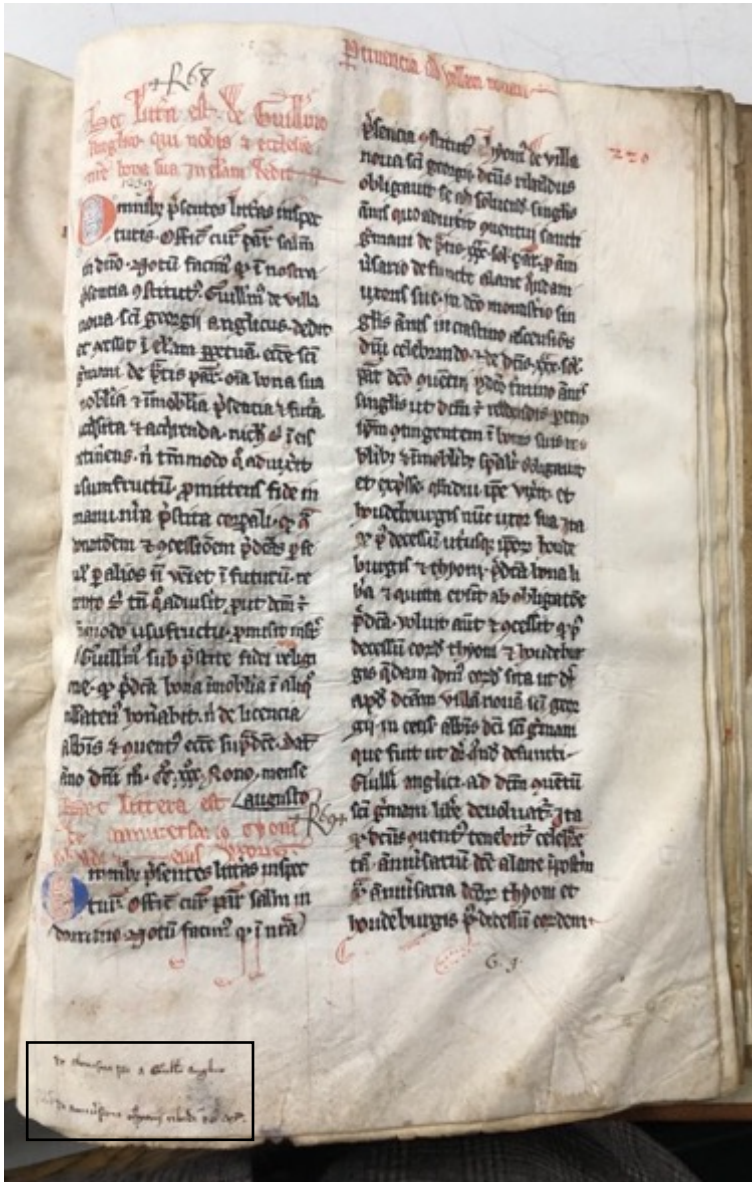 + R68
Pertinencia ad villam novam
Hec littera est de Guillmo
anglico qui nobis & ecclesie
nre bona sua in elam dedit
1239
Omnibȝ p̃sentes litt̃as inspec
turis. Offic̃ cur̃ par̃ salm̃
in dño. Notũ facimꝰ qͥ ĩ nostra
p̃sencia ꝯstitutꝰ. Guillmꝰ de villa
noua sc̃i georgii anglicus. dedit
et ꝯcessit ĩ el̃am ꝑpetuã. ecc̃e sc̃i
g̃mani de p̃tis par̃. oĩa bona sua
mobilia ⁊ ĩmobilia p̃sencia ⁊ fut̃a
acq̃sita ⁊ acq̃renda. nich̃ sͥ ĩ eis
retinens. ñ tm̃modo qͣ̃ aduix̃it
usumfructũ. ꝓmittens fide in
manu nr̃a p̃stita corꝑali. qͥ ꝯͣ
donatõem ⁊ ꝯcessiõem p̃dc̃as ꝑ se
ul̃ ꝑ alios ñ ueĩet ĩ futurũ. re
tento sͥ tñ qͣ̃aduix̃it. put dcm̃ ẽ
ũmodo usufructu. ꝓmisit insͣ
Guillmꝰ sub p̃stite fidei religi
one. qͥ p̃dc̃a bona ĩmobilia ĩ aliqͦ
nllatenꝰ ũ de licencia
abb̃is ⁊ ꝯuentꝰ ecc̃e sup̃dc̃e. Dat̃
ãno dñi m̃. cc̃. xxx. Nono. mense
augusto
Hec littera est
+R69+
de anniversario Thyoni
Omnibȝ p̃sentes litt̃as inspec
turꝭ. Offic̃ cur̃ par̃ salm̃ in
domino. Notũ facimꝰ qͥ ĩ nr̃a
p̃sencia ꝯstitutꝰ thyonꝰ de villa
noua sc̃i georgii
obligauit se ad soluend̃. singl̃is
ãnis quoaduix̃it ꝯuentui sancti
g̃mani de p̃tis. xxx. sol. par̃. ꝓ ãni
u̾sario defuncte alane q̃ndam
uxoris sue. in dc̃o monast̾io sin
gl̃is ãnis in crastino ascensiõis
dñi celebrando. ⁊ de dc̃is. xxx. sol.
par̃. dc̃o ꝯuentui p̃dc̃o t̾mino ãnis
singl̃is ut dcm̃ ẽ reddendis. porcio
ip̃m ꝯtingentem ĩ bonis suis mo
bilibȝ ⁊ ĩmobilibȝ sp̃alit̾ obligauit
et exp̃sse. q̃mdiu ip̃e uix̃it et
houdeburgis nũc uxor sua. Ita
qͥ p̾ decessũ utriusqȝ ip̃oꝝ houde
burgis ⁊ thyoni. p̃dc̃a bona li
b̾a ⁊ quieta er̃nt ab obligatõe
p̃dc̃a. uoluit aũt ⁊ ꝯcessit qͥ p̾
decessũ eoꝝd̃ thyoni ⁊ houdebur
gis q̃dam domꝰ eoꝝd̃ sita ut dr̃
apud dc̃am villã nouã sc̃i geor
gii. in censˀ abb̃is dc̃i sc̃i g̃mani
que fuit ut dr̃ q̃nd̃ defuncti
Guill̃i anglici. ad dcm̃ ꝯuẽtũ
sc̃i g̃mani lib̾e deuoluat̾. Ita
qͥ dc̃us ꝯuentꝰ tenebit̾ celebr̃e
tã. ãniu̾sariũ dc̃e alane
qͣ̃ ãniu̾saria dc̃oꝝ thyoni et
houdeburgis p̾ decessũ eoꝝdem.
230
G. J.
de a Guill̃o anglico